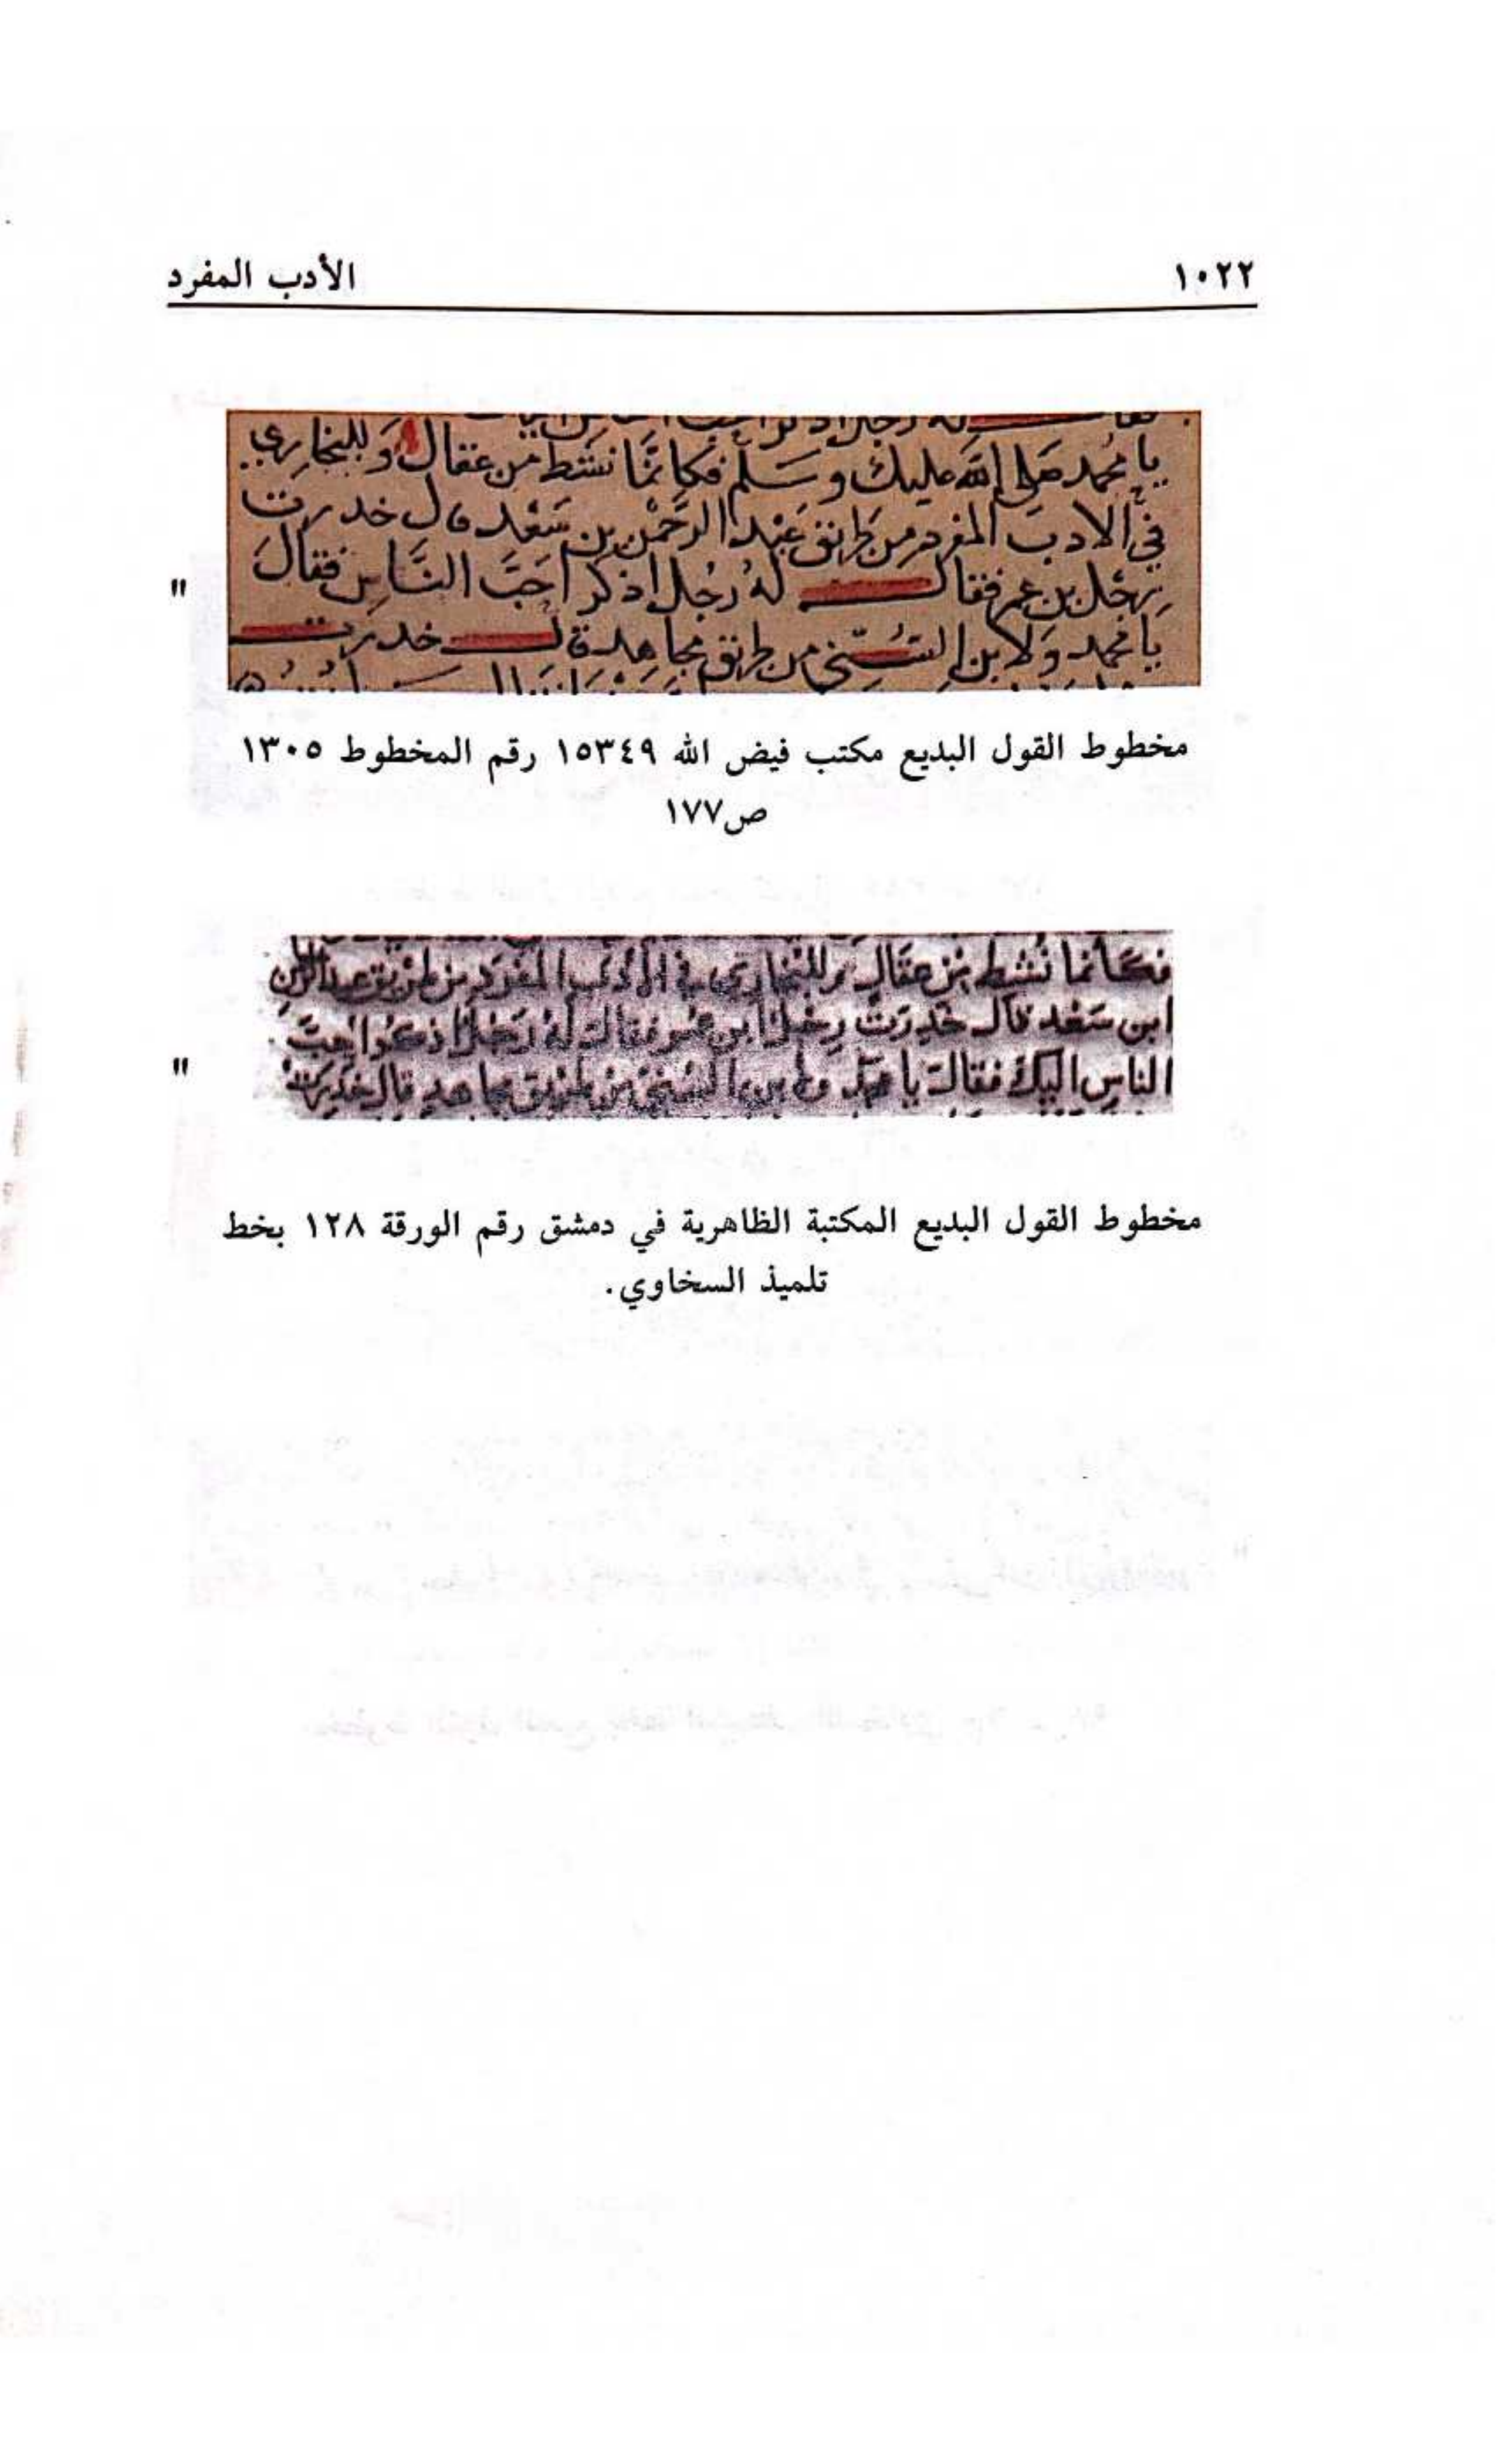 ١٠٢٢ الأدب المفرد
يا محمد صلى الله عليك وسلم فكانما نشط من عقال وللبخاري
في الادب المفرد من طريق عبد الرحمن بن سعد قال خدرت
رجل بن عمر فقال له رجل اذكر احب الناس فقال
"
يا محمد ولابن السني من طريق مجاهد قال خدرت
مخطوط القول البديع مكتب فيض الله ١٥٣٤٩ رقم المخطوط ١٣٠٥
ص١٧٧
فكانما نشط من عقال وللبخاري في الادب المفرد من طريق عبد الرحمن
ابن سعد قال خدرت رجل ابن عمر فقال له رجل اذكر احب
الناس اليك فقال يا محمد ولابن السني من طريق مجاهد قال خدرت
"
مخطوط القول البديع المكتبة الظاهرية في دمشق رقم الورقة ١٢٨ بخط
تلميذ السخاوي.